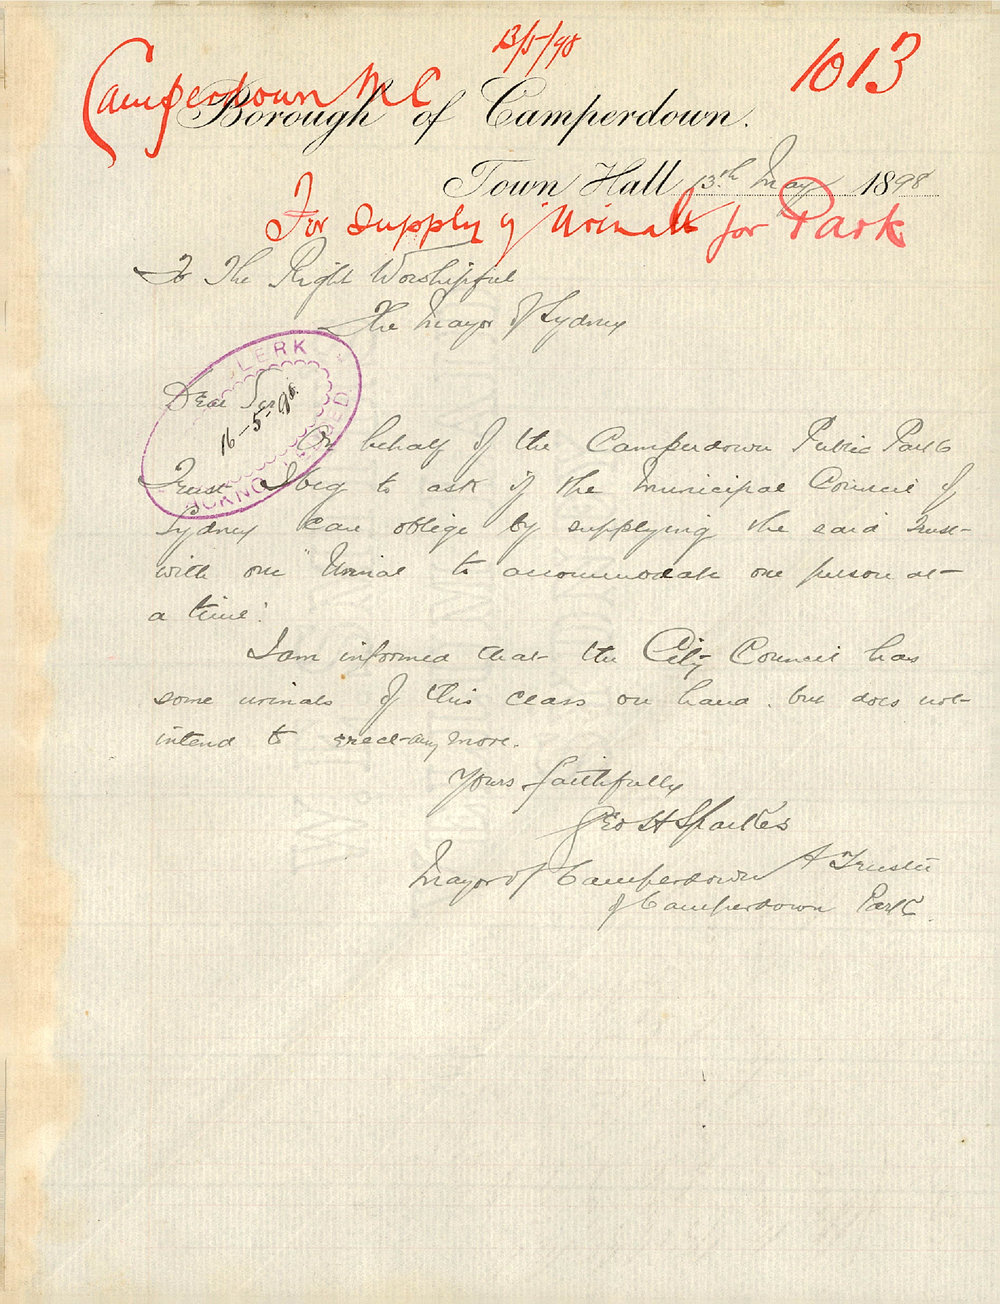 13/5/98
1013
Camperdown M C
Borough of Camperdown.
Town Hall 13th May 1898
For supply of Urinals for Park
To The Right Worshipful
The Mayor of Sydney
CLERK
ACKNOWLEDGED
16-5-98.
Dear Sir
On behalf of the Camperdown Public Park
Trust I beg to ask if the Municipal Council of
Sydney can oblige by supplying the said Trust
with one Urinal to accommodate one person at
a time.
I am informed that the City Council has
some urinals of this class on hand. but does not
intend to erect any more.
Yours faithfully
Geo H Sparkes
Mayor of Camperdown A Trustee
of Camperdown Park.